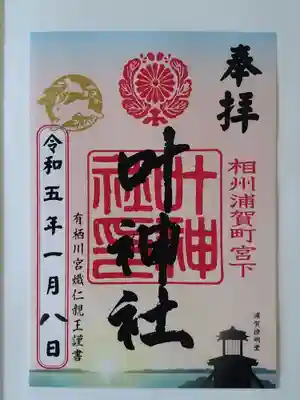 奉拝
相州浦賀町宮下
叶神社
叶神社印
有栖川宮熾仁親王謹書
令和五年一月八日
浦賀燈明堂